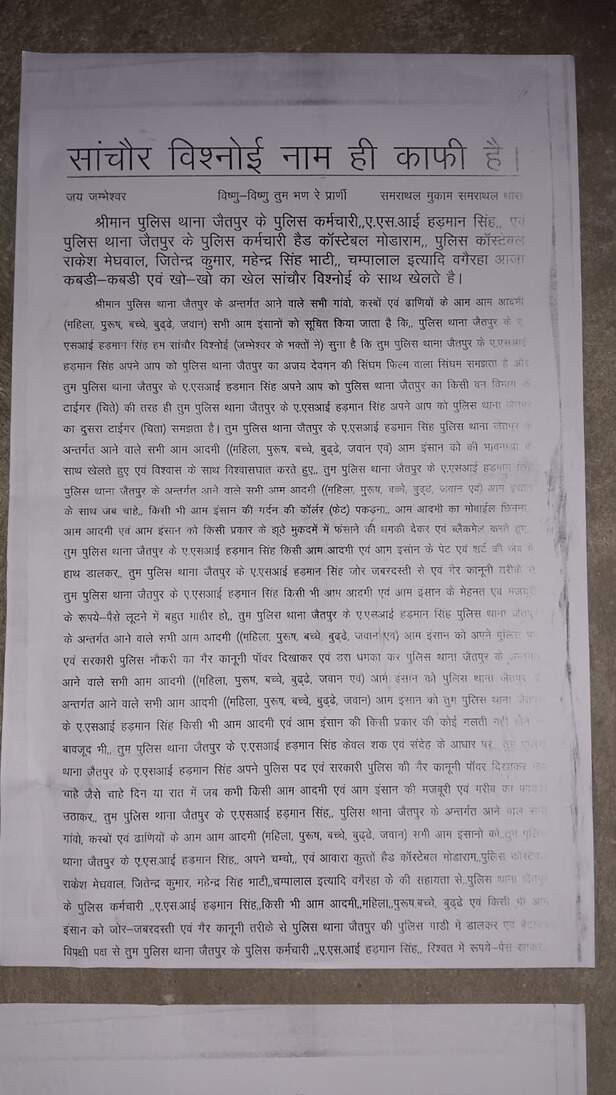 सांचौर विश्नोई नाम ही काफी है।
जय जम्भेश्वर विष्णु–विष्णु तुम भण रे प्रार्णी समराथल मुकाम समराथल धारा
श्रीमान पुलिस थाना जैतपुर के पुलिस कर्मचारी,,ए.एस.आई हड़मान सिंह,, एवं
पुलिस थाना जैतपुर के पुलिस कर्मचारी हैड कॉस्टेबल मोडाराम,, पुलिस कॉस्टेबल
राकेश मेघवाल, जितेन्द्र कुमार, महेन्द्र सिंह भाटी,, चम्पालाल इत्यादि वगैरहा आजा
कबडी–कबडी एवं खो–खो का खेल सांचौर विश्नोई के साथ खेलते है।
श्रीमान पुलिस थाना जैतपुर के अन्तर्गत आने वाले सभी गांवो, कस्बों एवं ढाणियों के आम आम आदमी
(महिला, पुरूष, बच्चे, बुढ्ढे, जवान) सभी आम इंसानों को सूचित किया जाता है कि,, पुलिस थाना जैतपुर के ए.
एसआई हड़मान सिंह हम सांचौर विश्नोई (जम्भेश्वर के भक्तों ने) सुना है कि तुम पुलिस थाना जैतपुर के ए.एसआई
हड़मान सिंह अपने आप को पुलिस थाना जैतपुर का अजय देवगन की सिंघम फिल्म वाला सिंघम समझता है और
तुम पुलिस थाना जैतपुर के ए.एसआई हड़मान सिंह अपने आप को पुलिस थाना जैतपुर का किसी वन विभाग के
टाईगर (चिते) की तरह ही तुम पुलिस थाना जैतपुर के ए.एसआई हड़मान सिंह अपने आप को पुलिस थाना जैतपुर
का दुसरा टाईगर (चिता) समझता है। तुम पुलिस थाना जैतपुर के ए.एसआई हड़मान सिंह पुलिस थाना जैतपुर के
अन्तर्गत आने वाले सभी आम आदमी ((महिला, पुरूष, बच्चे, बुढ्ढे, जवान एवं) आम इंसान को की भावनाओं के
साथ खेलते हुए एवं विश्वास के साथ विश्वासघात करते हुए,, तुम पुलिस थाना जैतपुर के ए.एसआई हड़मान सिंह
पुलिस थाना जैतपुर के अन्तर्गत आने वाले सभी आम आदमी ((महिला, पुरूष, बच्चे, बुढ्ढे, जवान एवं) आम इंसान
के साथ जब चाहे,, किसी भी आम इंसान की गर्दन की कॉर्लर (फेट) पकड़ना,, आम आदमी का मोबाईल छिनना,
आम आदमी एवं आम इंसान को किसी प्रकार के झूठे मुकदमें में फंसाने की धमकी देकर एवं ब्लैकमेल करते हुए,,
तुम पुलिस थाना जैतपुर के ए.एसआई हड़मान सिंह किसी आम आदमी एवं आम इसान के पेट एवं शर्ट की जेब में
हाथ डालकर,, तुम पुलिस थाना जैतपुर के ए.एसआई हड़मान सिंह जोर जबरदस्ती से एवं गैर कानूनी तरीके से
तुम पुलिस थाना जैतपुर के ए.एसआई हड़मान सिंह किसी भी आम आदमी एवं आम इंसान के मेहनत एवं मजदूरी
के रूपये–पैसे लूटने में बहुत माहीर हो,, तुम पुलिस थाना जैतपुर के ए.एसआई हड़मान सिंह पुलिस थाना जैतपुर
के अन्तर्गत आने वाले सभी आम आदमी ((महिला, पुरूष, बच्चे, बुढ्ढे, जवान एवं) आम इंसान को अपने पुलिस पद
एवं सरकारी पुलिस नौकरी का गैर कानूनी पॉवर दिखाकर एवं डरा धमका कर पुलिस थाना जैतपुर के अन्तर्गत
आने वाले सभी आम आदमी ((महिला, पुरूष, बच्चे, बुढ्ढे, जवान एवं) आम इंसान को पुलिस थाना जैतपुर के
अन्तर्गत आने वाले सभी आम आदमी ((महिला, पुरूष, बच्चे, बुढ्ढे, जवान) आम इंसान को तुम पुलिस थाना जैतपुर
के ए.एसआई हड़मान सिंह किसी भी आम आदमी एवं आम इंसान की किसी प्रकार की कोई गलती नही होने के
बावजूद भी,, तुम पुलिस थाना जैतपुर के ए.एसआई हड़मान सिंह केवल शक एवं संदेह के आधार पर,, तुम पुलिस
थाना जैतपुर के ए.एसआई हड़मान सिंह अपने पुलिस पद एवं सरकारी पुलिस की गैर कानूनी पॉवर दिखाकर जब
चाहे जैसे चाहे दिन या रात में जब कभी किसी आम आदमी एवं आम इंसान की मजबूरी एवं गरीब का फायदा
उठाकर,, तुम पुलिस थाना जैतपुर के ए.एसआई हड़मान सिंह,, पुलिस थाना जैतपुर के अन्तर्गत आने वाले सभी
गांवो, कस्बों एवं ढाणियों के आम आम आदमी (महिला, पुरूष, बच्चे, बुढ्ढे, जवान) सभी आम इंसानो को,,तुम पुलिस
थाना जैतपुर के ए.एस.आई हड़मान सिंह,, अपने चम्चो,, एवं आवारा कुत्तों हैड कॉस्टेबल मोडाराम,,पुलिस कॉस्टेबल
राकेश मेघवाल, जितेन्द्र कुमार, महेन्द्र सिंह भाटी,,चम्पालाल इत्यादि वगैरहा के की सहायता से,,पुलिस थाना जैतपुर
के पुलिस कर्मचारी ,,ए.एस.आई हड़मान सिंह,,किसी भी आम आदमी,,महिला,,पुरूष,बच्चे, बुढ्ढे एवं किसी भी आम
इंसान को जोर–जबरदस्ती एवं गैर कानूनी तरीके से पुलिस थाना जैतपुर की पुलिस गाडी में डालकर एवं
विपक्षी पक्ष से तुम पुलिस थाना जैतपुर के पुलिस कर्मचारी ,,ए.एस.आई हड़मान सिंह,, रिश्वत में रूपये–पैसे खाकर